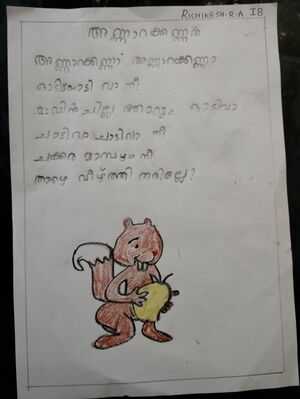 RISHIKESH.R.A IB
അണ്ണാറക്കണ്ണൻ
അണ്ണാറക്കണ്ണാ അണ്ണാറക്കണ്ണാ
ഓടിയോടി വാ നീ
മാവിൻ ചില്ല തോറും ഓടിവാ
ചാടിവാ ചാടിവാ നീ
ചക്കര മാമ്പഴം നീ
താഴെ വീഴ്ത്തി തരില്ലേ?